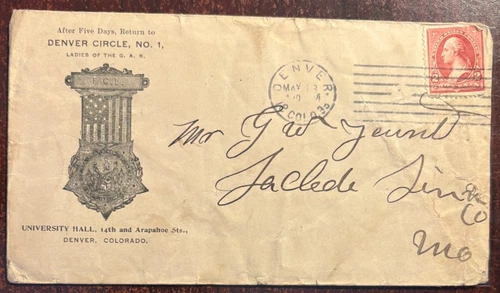 After Five Days, Return to
DENVER CIRCLE, NO. 1,
LADIES OF THE G. A. R.
UNIVERSITY HALL, 14th and Arapahoe Sts.,
DENVER, COLORADO.
DENVER
MAY
COLO.
2 2
Mr G W Yount
Laclede
Co
Mo